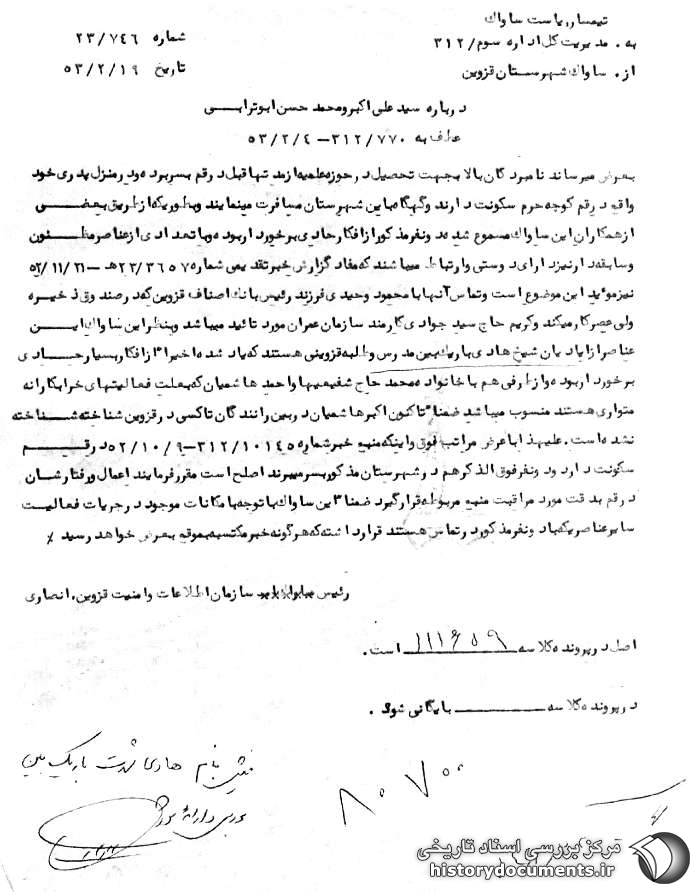 تیمسار ریاست ساواک
به . مدیریت کل اداره سوم /۳۱۲
شماره ۲۳/۷۴۶
از . ساواک شهرستان قزوین
تاریخ ۵۳/۲/۱۹
درباره سید علی اکبر و محمد حسن ابوترابی
عطف به ۳۱۲/۷۷۰ – ۵۳/۲/۴
بعرض میرساند نامبردگان بالا بجهت تحصیل در حوزه علمیه از مدتها قبل در قم بسر برده و در منزل پدری خود
واقع در قم کوچه حرم سکونت دارند و گهگاه باین شهرستان مسافرت مینمایند و بطوریکه از طریق بعضی
از همکاران این ساواک مسموع شده دو نفر مذکور از افکار حادی برخوردار بوده و با تعدادی از عناصر مظنون
و سابقه دار نیز دارای دوستی و ارتباط میباشند که مفاد گزارش خبر تقدیمی شماره ۲۳/۳۶۵۷ ه – ۵۲/۱۱/۲۱
نیز موئید این موضوع است و تماس آنها با محمود وحیدی فرزند رئیس بانک اصناف قزوین که در صندوق ذخیره
ولی عصر کار میکند و کریم حاج سید جوادی کارمند سازمان عمران مورد تائید میباشد و بنظر این ساواک این
عناصر از ایادیان شیخ هادی باریک بین مدرس و طلبه قزوینی هستند که یاد شده اخیرا" از افکار بسیار حادی
برخوردار بوده و از طرفی هم با خانواده محمد حاج شفیعیها و احمدها شمیان که بعلت فعالیتهای خرابکارانه
متواری هستند منسوب میباشد ضمنا" تاکنون اکبرها شمیان در بین رانندگان تاکسی در قزوین شناخته شناخته
نشده است . علیهذا با عرض مراتب فوق و اینکه منبع خبر شماره ۳۱۲/۱۰۱۴۵ – ۵۲/۱۰/۹ در قم
سکونت دارد و دو نفر فوق الذکر هم در شهرستان مذکور بسر میبرند اصلح است مقرر فرمایند اعمال و رفتارشان
در قم بدقت مورد مراقبت منبع مربوطه قرار گیرد ضمنا" این ساواک با توجه بامکانات موجود در جریان فعالیت
سایر عناصریکه با دو نفر مذکور در تماس هستند قرار داشته که هر گونه خبر مکتسبه بموقع بعرض خواهد رسید ٪
رئیس سازمان اطلاعات و امنیت قزوین . انصاری
اصل در پرونده کلاسه ۱۱۱۶۵۹ است .
در پرونده کلاسه ـــــــ بایگانی شود .
بنام هادی شهرت باریک بین
۸۰۷۰۰
مرکز بررسی اسناد تاریخی
historydocuments.ir